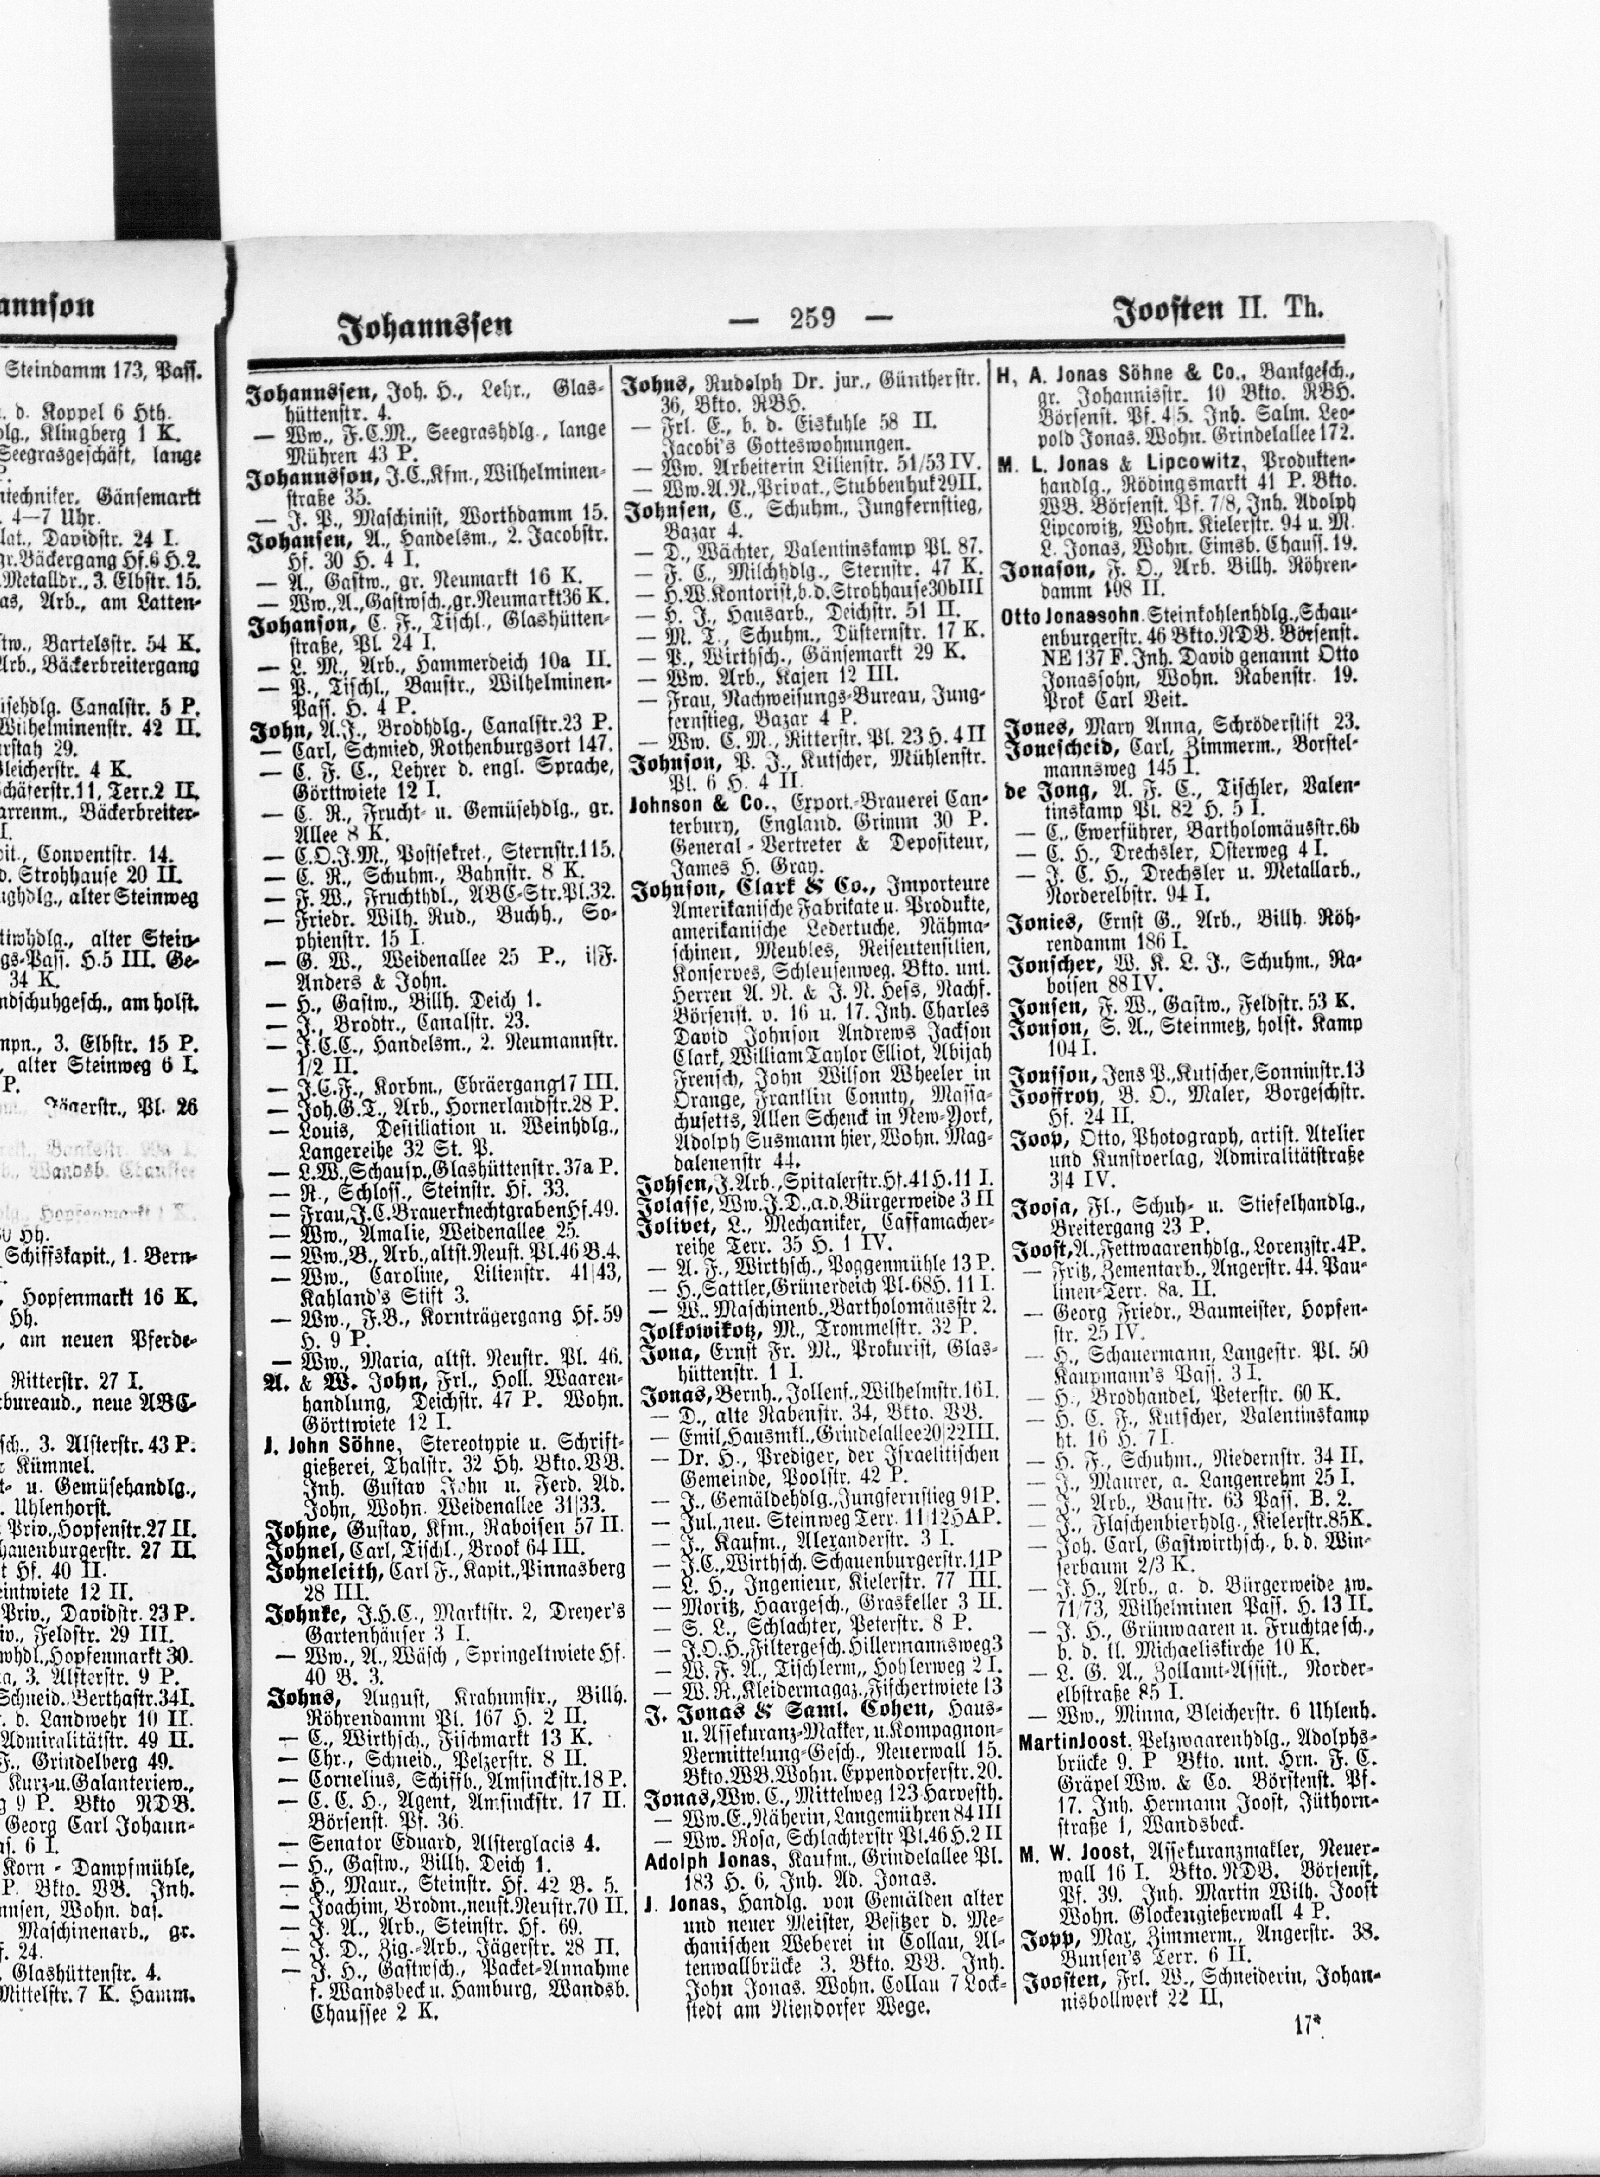 annson
Steindamm 173, Pass.
d. Koppel 6 Hth.
Klingberg 1 K.
Seegrasgeschäft, lange
Gänsemarkt
4—7 Uhr.
Davidstr. 24 I.
gr. Bäckergang Hf. 6 H. 2.
Metalldr., 3. Elbstr. 15.
Arb., am Latten-
Bartelsstr. 54 K.
Arb., Bäckerbreitergang
Canalstr. 5 P.
Wilhelminenstr. 42 II.
29.
Bleicherstr. 4 K.
11, Terr. 2 II.
Bäckerbreiter-
Conventstr. 14.
d. Strohhause 20 II.
alter Steinweg
alter Stein-
Pass. H. 5 III. Ge-
34 K.
am holst.
3. Elbstr. 15 P.
alter Steinweg 6 I.
P.
Jägerstr., Pl. 26
Hh.
Schiffskapit., 1. Bern-
Hopfenmarkt 16 K.
Hh.
am neuen Pferde-
Ritterstr. 27 I.
neue ABC-
3. Alsterstr. 43 P.
Kümmel.
u. Gemüsehandlg.,
Uhlenhorst.
Priv., Hopfenstr. 27 II.
27 II.
Hf. 40 II.
12 II.
Priv., Davidstr. 23 P.
Feldstr. 29 III.
Hopfenmarkt 30.
3. Alsterstr. 9 P.
Schneid. Berthastr. 34 I.
d. Landwehr 10 II.
Admiralitätstr. 49 II.
Grindelberg 49.
Kurz- u. Galanteriew.,
9 P. Bkto NDB.
Georg Carl Johann-
6 I.
Korn - Dampfmühle,
P. Bkto. VB. Inh.
Wohn. das.
Maschinenarb., gr.
24.
Glashüttenstr. 4.
Mittelstr. 7 K. Hamm.
Johannssen — 259 — Joosten II. Th.
Johannssen, Joh. H., Lehr., Glas-
hüttenstr. 4.
— Ww., F.C.M., Seegrashdlg., lange
Mühren 43 P.
Johannsson, J.C., Kfm., Wilhelminen-
straße 35.
— J. P., Maschinist, Worthdamm 15.
Johansen, A., Handelsm., 2. Jacobstr.
Hf. 30 H. 4 I.
— A., Gastw., gr. Neumarkt 16 K.
— Ww., A., Gastwsch., gr. Neumarkt 36 K.
Johanson, C. F., Tischl., Glashütten-
straße, Pl. 24 I.
— L. M., Arb., Hammerdeich 10a II.
— P., Tischl., Baustr., Wilhelminen-
Pass. H. 4 P.
John, A.F., Brodhdlg., Canalstr. 23 P.
— Carl, Schmied, Rothenburgsort 147.
— C. F. C., Lehrer d. engl. Sprache,
Görttwiete 12 I.
— C. R., Frucht- u. Gemüsehdlg., gr.
Allee 8 K.
— C.O.J.M., Postsekret., Sternstr. 115.
— C. R., Schuhm., Bahnstr. 8 K.
— F. W., Fruchthdl., ABC-Str. Pl. 32.
— Friedr. Wilh. Rud., Buchh., So-
phienstr. 15 I.
— G. W., Weidenallee 25 P., i/F.
Anders & John.
— H., Gastw., Billh. Deich 1.
— J., Brodtr., Canalstr. 23.
— J.C.C., Handelsm., 2. Neumannstr.
1/2 II.
— J.C.F., Korbm., Ebräergang 17 III.
— Joh. G. T., Arb., Hornerlandstr. 28 P.
— Louis, Destillation u. Weinhdlg.,
Langereihe 32 St. P.
— L.W., Schausp., Glashüttenstr. 37a P.
— R., Schloss., Steinstr. Hf. 33.
— Frau, J.C. Brauerknechtgraben Hf. 49.
— Ww., Amalie, Weidenallee 25.
— Ww., B., Arb., altst. Neust. Pl. 46 B. 4.
— Ww., Caroline, Lilienstr. 41/43,
Kahland's Stift 3.
— Ww., F.B., Kornträgergang Hf. 59
H. 9 P.
— Ww., Maria, altst. Neustr. Pl. 46.
A. & W. John, Frl., Holl. Waaren-
handlung, Deichstr. 47 P. Wohn.
Görttwiete 12 I.
J. John Söhne, Stereotypie u. Schrift-
gießerei, Thalstr. 32 Hh. Bkto. VB.
Inh. Gustav John u. Ferd. Ad.
John, Wohn. Weidenallee 31/33.
Johne, Gustav, Kfm., Raboisen 57 II.
Johnel, Carl, Tischl., Brook 64 III.
Johneleith, Carl F., Kapit., Pinnasberg
28 III.
Johnke, J.H.C., Marktstr. 2, Dreyer's
Gartenhäuser 3 I.
— Ww., A., Wäsch., Springeltwiete Hf.
40 B. 3.
Johns, August, Krahnmstr., Billh.
Röhrendamm Pl. 167 H. 2 II.
— C., Wirthsch., Fischmarkt 13 K.
— Chr., Schneid., Pelzerstr. 8 II.
— Cornelius, Schiffb., Amsinckstr. 18 P.
— C. C. H., Agent, Amsinckstr. 17 II.
Börsenst. Pf. 36.
— Senator Eduard, Alsterglacis 4.
— H., Gastw., Billh. Deich 1.
— H., Maur., Steinstr. Hf. 42 B. 5.
— Joachim, Brodm., neust. Neustr. 70 II.
— J. A., Arb., Steinstr. Hf. 69.
— J. D., Zig.-Arb., Jägerstr. 28 II.
— J. H., Gastwsch., Packet-Annahme
f. Wandsbeck u. Hamburg, Wandsb.
Chaussee 2 K.
Johns, Rudolph Dr. jur., Güntherstr.
36, Bkto. RBH.
— Frl. E., b. d. Eiskuhle 58 II.
Jacobi's Gotteswohnungen.
— Ww. Arbeiterin Lilienstr. 51/53 IV.
— Ww. A. N., Privat., Stubbenhuk 29 II.
Johnsen, C., Schuhm., Jungfernstieg,
Bazar 4.
— D., Wächter, Valentinskamp Pl. 87.
— F. C., Milchhdlg., Sternstr. 47 K.
— H.W. Kontorist, b. d. Strohhause 30b III
— H. J., Hausarb., Deichstr. 51 II.
— M. T., Schuhm., Düsternstr. 17 K.
— P., Wirthsch., Gänsemarkt 29 K.
— Ww. Arb., Kajen 12 III.
— Frau, Nachweisungs-Bureau, Jung-
fernstieg, Bazar 4 P.
— Ww. C. M., Ritterstr. Pl. 23 H. 4 II
Johnson, P. J., Kutscher, Mühlenstr.
Pl. 6 H. 4 II.
Johnson & Co., Export-Brauerei Can-
terbury, England. Grimm 30 P.
General - Vertreter & Depositeur,
James H. Gray.
Johnson, Clark & Co., Importeure
Amerikanische Fabrikate u. Produkte,
amerikanische Ledertuche, Nähma-
schinen, Meubles, Reiseutensilien,
Konserves, Schleusenweg. Bkto. unt.
Herren A. N. & J. N. Hess, Nachf.
Börsenst. v. 16 u. 17. Inh. Charles
David Johnson Andrews Jackson
Clark, William Taylor Elliot, Abijah
French, John Wilson Wheeler in
Orange, Frantlin Connty, Massa-
chusetts, Allen Schenck in New-York,
Adolph Susmann hier, Wohn. Mag-
dalenenstr 44.
Johsen, J. Arb., Spitalerstr. Hf. 41 H. 11 I.
Jolasse, Ww. J. D., a. d. Bürgerweide 3 II
Jolivet, L., Mechaniker, Caffamacher-
reihe Terr. 35 H. 1 IV.
— A. F., Wirthsch., Poggenmühle 13 P.
— H., Sattler, Grünerdeich Pl. 68 H. 11 I.
— W., Maschinenb., Bartholomäusstr 2.
Jolkowikotz, M., Trommelstr. 32 P.
Jona, Ernst Fr. M., Prokurist, Glas-
hüttenstr. 1 I.
Jonas, Bernh., Jollenf., Wilhelmstr. 16 I.
— D., alte Rabenstr. 34, Bkto. VB.
— Emil, Hausmkl., Grindelallee 20/22 III.
— Dr. H., Prediger, der Israelitischen
Gemeinde, Poolstr. 42 P.
— J., Gemäldehdlg., Jungfernstieg 91 P.
— Jul., neu. Steinweg Terr. 11/12 H A P.
— J., Kaufm., Alexanderstr. 3 I.
— J. C., Wirthsch. Schauenburgerstr. 11 P
— L. H., Ingenieur, Kielerstr. 77 III.
— Moritz, Haargesch., Graskeller 3 II.
— S. L., Schlachter, Peterstr. 8 P.
— J.O.H., Filtergesch. Hillermannsweg 3
— W. F. A., Tischlerm., Hohlerweg 2 I.
— W. R., Kleidermagaz., Fischertwiete 13
J. Jonas & Saml. Cohen, Haus-
u. Assekuranz-Makler, u. Kompagnon-
Vermittelung-Gesch., Neuerwall 15.
Bkto. WB. Wohn. Eppendorferstr. 20.
Jonas, Ww. C., Mittelweg 123 Harvesth.
— Ww. E., Näherin, Langemühren 84 III
— Ww. Rosa, Schlachterstr Pl. 46 H. 2 II
Adolph Jonas, Kaufm., Grindelallee Pl.
183 H. 6, Inh. Ad. Jonas.
J. Jonas, Handlg. von Gemälden alter
und neuer Meister, Besitzer d. Me-
chanischen Weberei in Collau, Al-
tenwallbrücke 3. Bkto. VB. Inh.
John Jonas. Wohn. Collau 7 Lock-
stedt am Niendorfer Wege.
H. A. Jonas Söhne & Co., Bankgesch.,
gr. Johannisstr. 10 Bkto. RBH.
Börsenst. Pf. 4/5. Inh. Salm. Leo-
pold Jonas. Wohn. Grindelallee 172.
M. L. Jonas & Lipcowitz, Produkten-
handlg., Rödingsmarkt 41 P. Bkto.
WB. Börsenst. Pf. 7/8, Inh. Adolph
Lipcowitz, Wohn. Kielerstr. 94 u. M.
L. Jonas, Wohn. Eimsb. Chauss. 19.
Jonason, F. O., Arb. Billh. Röhren-
damm 198 II.
Otto Jonassohn. Steinkohlenhdlg., Schau-
enburgerstr. 46 Bkto. NDB. Börsenst.
NE 137 F. Inh. David genannt Otto
Jonassohn, Wohn. Rabenstr. 19.
Prok Carl Veit.
Jones, Mary Anna, Schröderstift 23.
Jonescheid, Carl, Zimmerm., Borstel-
mannsweg 145 I.
de Jong, A. F. C., Tischler, Valen-
tinskamp Pl. 82 H. 5 I.
— C., Ewerführer, Bartholomäusstr. 6b
— C. H., Drechsler, Osterweg 4 I.
— J. C. H., Drechsler u. Metallarb.,
Norderelbstr. 94 I.
Jonies, Ernst G., Arb., Billh. Röh-
rendamm 186 I.
Jonscher, W. K. L. J., Schuhm., Ra-
boisen 88 IV.
Jonsen, F. W., Gastw., Feldstr. 53 K.
Jonson, S. A., Steinmetz, holst. Kamp
104 I.
Jonsson, Jens P., Kutscher, Sonninstr. 13
Jooffroy, B. O., Maler, Borgeschstr.
Hf. 24 II.
Joop, Otto, Photograph, artist. Atelier
und Kunstverlag, Admiralitätstraße
3/4 IV.
Joosa, Fl., Schuh- u. Stiefelhandlg.,
Breitergang 23 P.
Joost, A., Fettwaarenhdlg., Lorenzstr. 4 P.
— Fritz, Zementarb., Angerstr. 44. Pau-
linen-Terr. 8a. II.
— Georg Friedr., Baumeister, Hopfen-
str. 25 IV.
— H., Schauermann, Langestr. Pl. 50
Kaupmann's Pass. 3 I.
— H., Brodhandel, Peterstr. 60 K.
— H. C. F., Kutscher, Valentinskamp
ht. 16 H. 7 I.
— H. F., Schuhm., Niedernstr. 34 II.
— J., Maurer, a. Langenrehm 25 I.
— J., Arb., Baustr. 63 Pass. B. 2.
— J., Flaschenbierhdlg., Kielerstr. 85 K.
— Joh. Carl, Gastwirthsch., b. d. Win-
serbaum 2/3 K.
— J. H., Arb., a. d. Bürgerweide zw.
71/73, Wilhelminen Pass. H. 13 II.
— J. H., Grünwaaren u. Fruchtgesch.,
b. d. kl. Michaeliskirche 10 K.
— L. G. A., Zollamt-Assist., Norder-
elbstraße 85 I.
— Ww., Minna, Bleicherstr. 6 Uhlenh.
Martin Joost. Pelzwaarenhdlg., Adolphs-
brücke 9. P Bkto. unt. Hrn. F. C.
Gräpel Ww. & Co. Börstenst. Pf.
17. Inh. Hermann Joost, Jüthorn-
straße 1, Wandsbeck.
M. W. Joost, Assekuranzmakler, Neuer-
wall 16 I. Bkto. NDB. Börsenst.
Pf. 39. Inh. Martin Wilh. Joost
Wohn. Glockengießerwall 4 P.
Jopp, Max, Zimmerm., Angerstr. 38.
Bunsen's Terr. 6 II.
Joosten, Frl. W., Schneiderin, Johan-
nisbollwerk 22 II.
17*